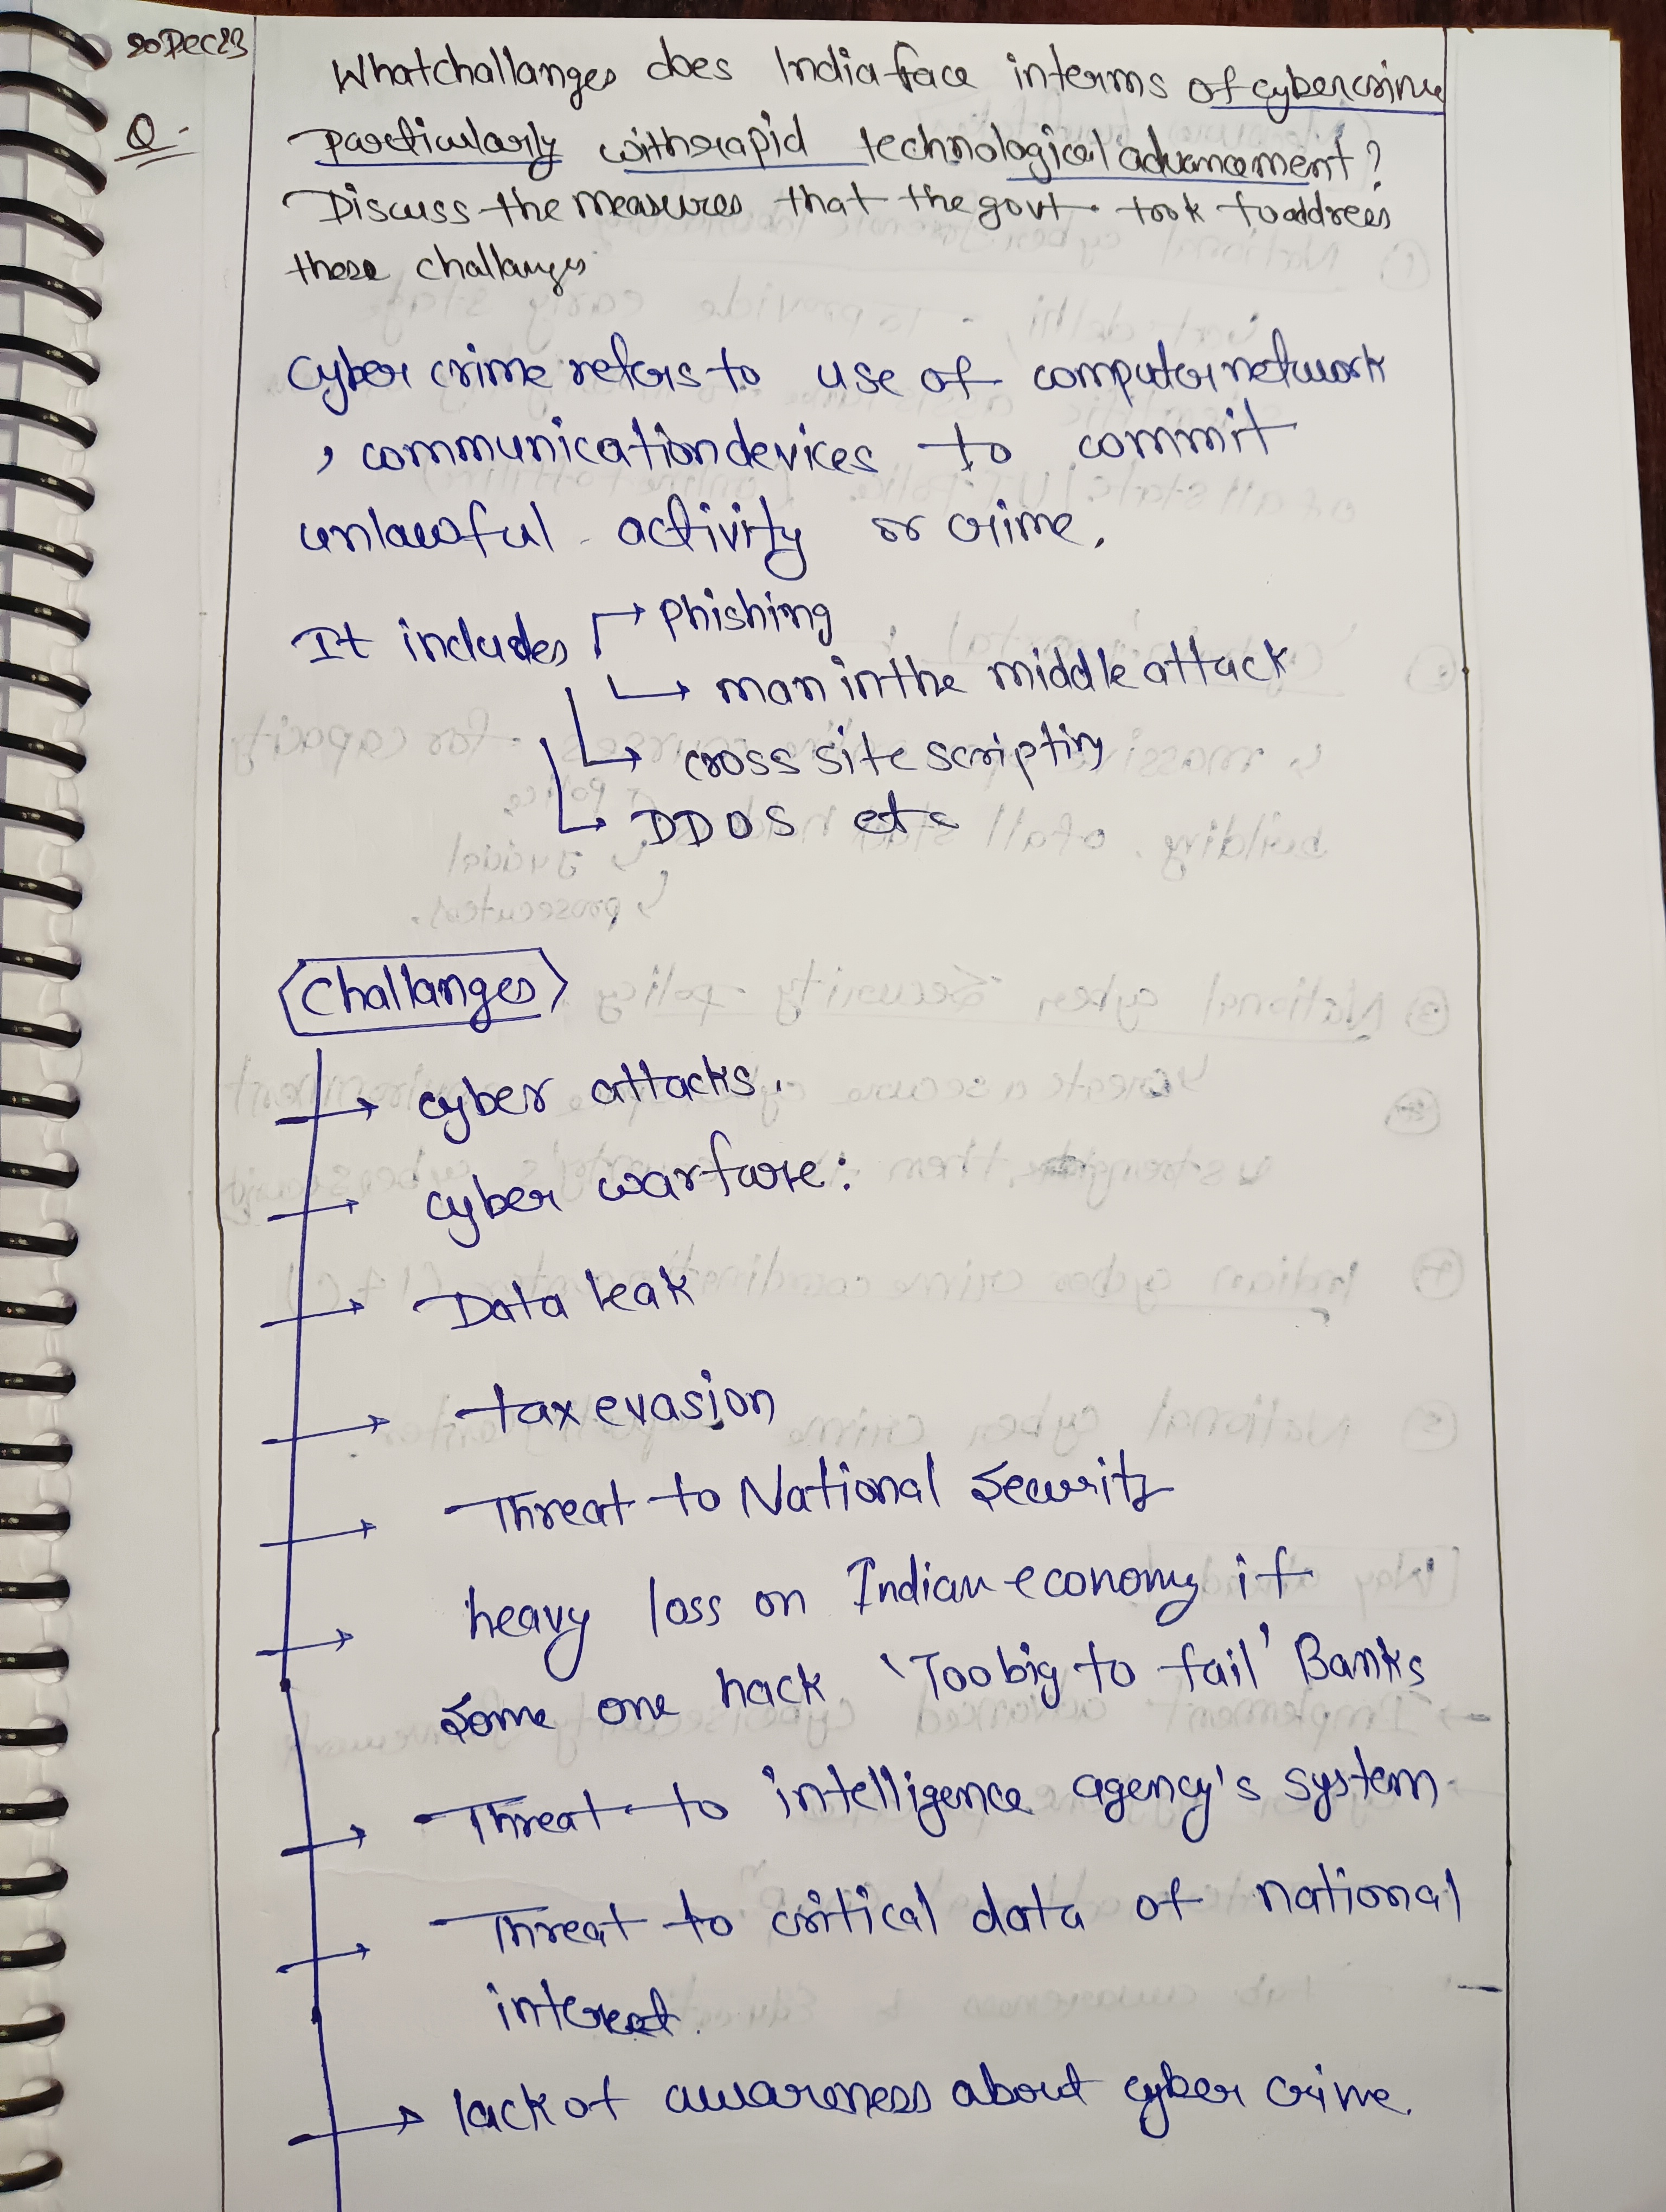 20Dec23
What challanges does India face interms of cybercrime
Q-
Particularly with rapid technological advancement?
Discuss the measures that the govt. took to address
these challanges
Cyber crime refers to use of computer network
, communication devices to commit
unlawful activity or crime.
It includes → Phishing
→ man in the middle attack
→ cross site scripting
→ DDOS etc
Challanges
→ cyber attacks.
→ cyber warfare:
→ Data leak
→ tax evasion
→ Threat to National Security
→ heavy loss on Indian economy if
some one hack 'Too big to fail' Banks
→ Threat to intelligence agency's system
→ Threat to critical data of national
interest.
→ lack of awareness about cyber crime.